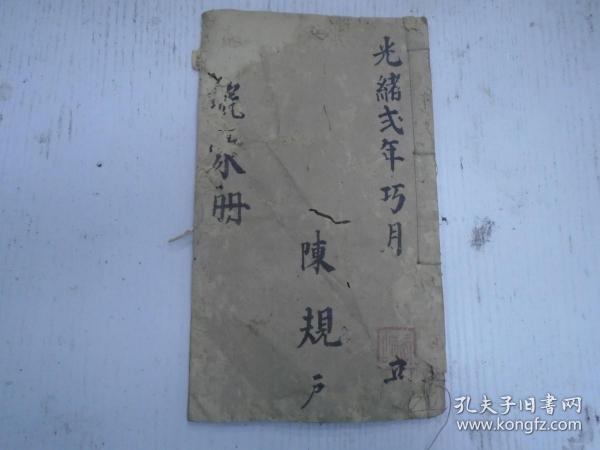 光緒弍年巧月
立
陳規戶
册
孔夫子旧书网
www.kongfz.com